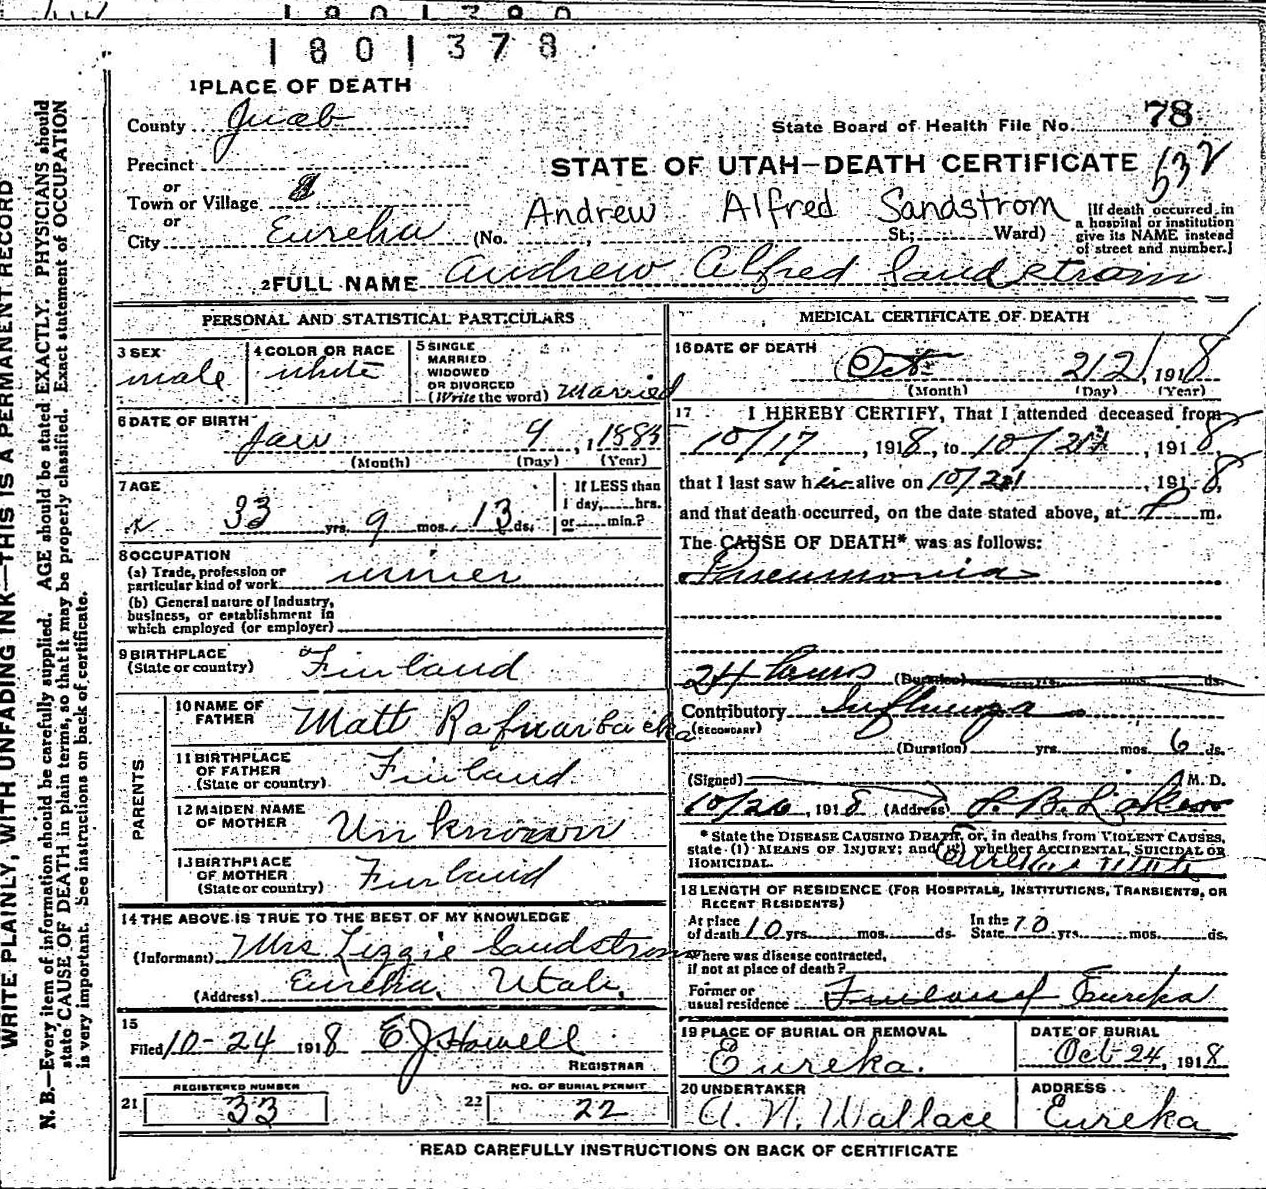 1801378
1 PLACE OF DEATH
County Juab
State Board of Health File No. 78
Precinct
STATE OF UTAH—DEATH CERTIFICATE 532
or
Town or Village
or
Andrew Alfred Sandstrom
City Eureka (No. , St.; Ward)
[If death occurred in a hospital or institution give its NAME instead of street and number.]
2 FULL NAME Andrew Alfred Sandstrom
PERSONAL AND STATISTICAL PARTICULARS
3 SEX
male
4 COLOR OR RACE
white
5 SINGLE
MARRIED
WIDOWED
OR DIVORCED
(Write the word) Married
6 DATE OF BIRTH
Jan 9, 1885
(Month) (Day) (Year)
7 AGE
33 yrs. 9 mos. 13 ds.
If LESS than
1 day, hrs.
or min.?
8 OCCUPATION
(a) Trade, profession or
particular kind of work miner
(b) General nature of Industry,
business, or establishment in
which employed (or employer)
9 BIRTHPLACE
(State or country) Finland
PARENTS
10 NAME OF
FATHER Matt
11 BIRTHPLACE
OF FATHER
(State or country) Finland
12 MAIDEN NAME
OF MOTHER Unknown
13 BIRTHPLACE
OF MOTHER
(State or country) Finland
14 THE ABOVE IS TRUE TO THE BEST OF MY KNOWLEDGE
(Informant) Mrs Lizzie Sandstrom
(Address) Eureka, Utah,
15
Filed 10-24 1918 E J Howell
REGISTRAR
REGISTERED NUMBER
21 33
NO. OF BURIAL PERMIT
22 22
MEDICAL CERTIFICATE OF DEATH
16 DATE OF DEATH
Oct 1918
(Month) (Day) (Year)
17 I HEREBY CERTIFY, That I attended deceased from
10/17, 1918, to 10/21, 1918,
that I last saw h alive on 10/21, 1918,
and that death occurred, on the date stated above, at P m.
The CAUSE OF DEATH* was as follows:
Pneumonia
24 hours (Duration) yrs. mos. ds.
Contributory Influenza
(SECONDARY)
(Duration) yrs. mos. 6 ds.
(Signed) M. D.
10/26, 1918 (Address)
* State the DISEASE CAUSING DEATH, or, in deaths from VIOLENT CAUSES,
state (1) MEANS OF INJURY; and (2) whether ACCIDENTAL, SUICIDAL OR
HOMICIDAL. Eureka Utah
18 LENGTH OF RESIDENCE (FOR HOSPITALS, INSTITUTIONS, TRANSIENTS, OR
RECENT RESIDENTS)
At place
of death 10 yrs. mos. ds.
In the
State 10 yrs. mos. ds.
Where was disease contracted,
if not at place of death?
Former or
usual residence Finland Eureka
19 PLACE OF BURIAL OR REMOVAL
Eureka.
DATE OF BURIAL
Oct 24, 1918
20 UNDERTAKER
A. N. Wallace
ADDRESS
Eureka
READ CAREFULLY INSTRUCTIONS ON BACK OF CERTIFICATE
WRITE PLAINLY, WITH UNFADING INK—THIS IS A PERMANENT RECORD
N. B.—Every item of information should be carefully supplied. AGE should be stated EXACTLY. PHYSICIANS should
state CAUSE OF DEATH in plain terms, so that it may be properly classified. Exact statement of OCCUPATION
is very important. See instructions on back of certificate.